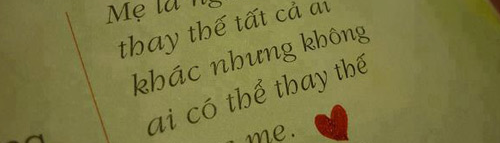 Mẹ là
thay thế tất cả ai
khác nhưng không
ai có thể thay thế
mẹ.